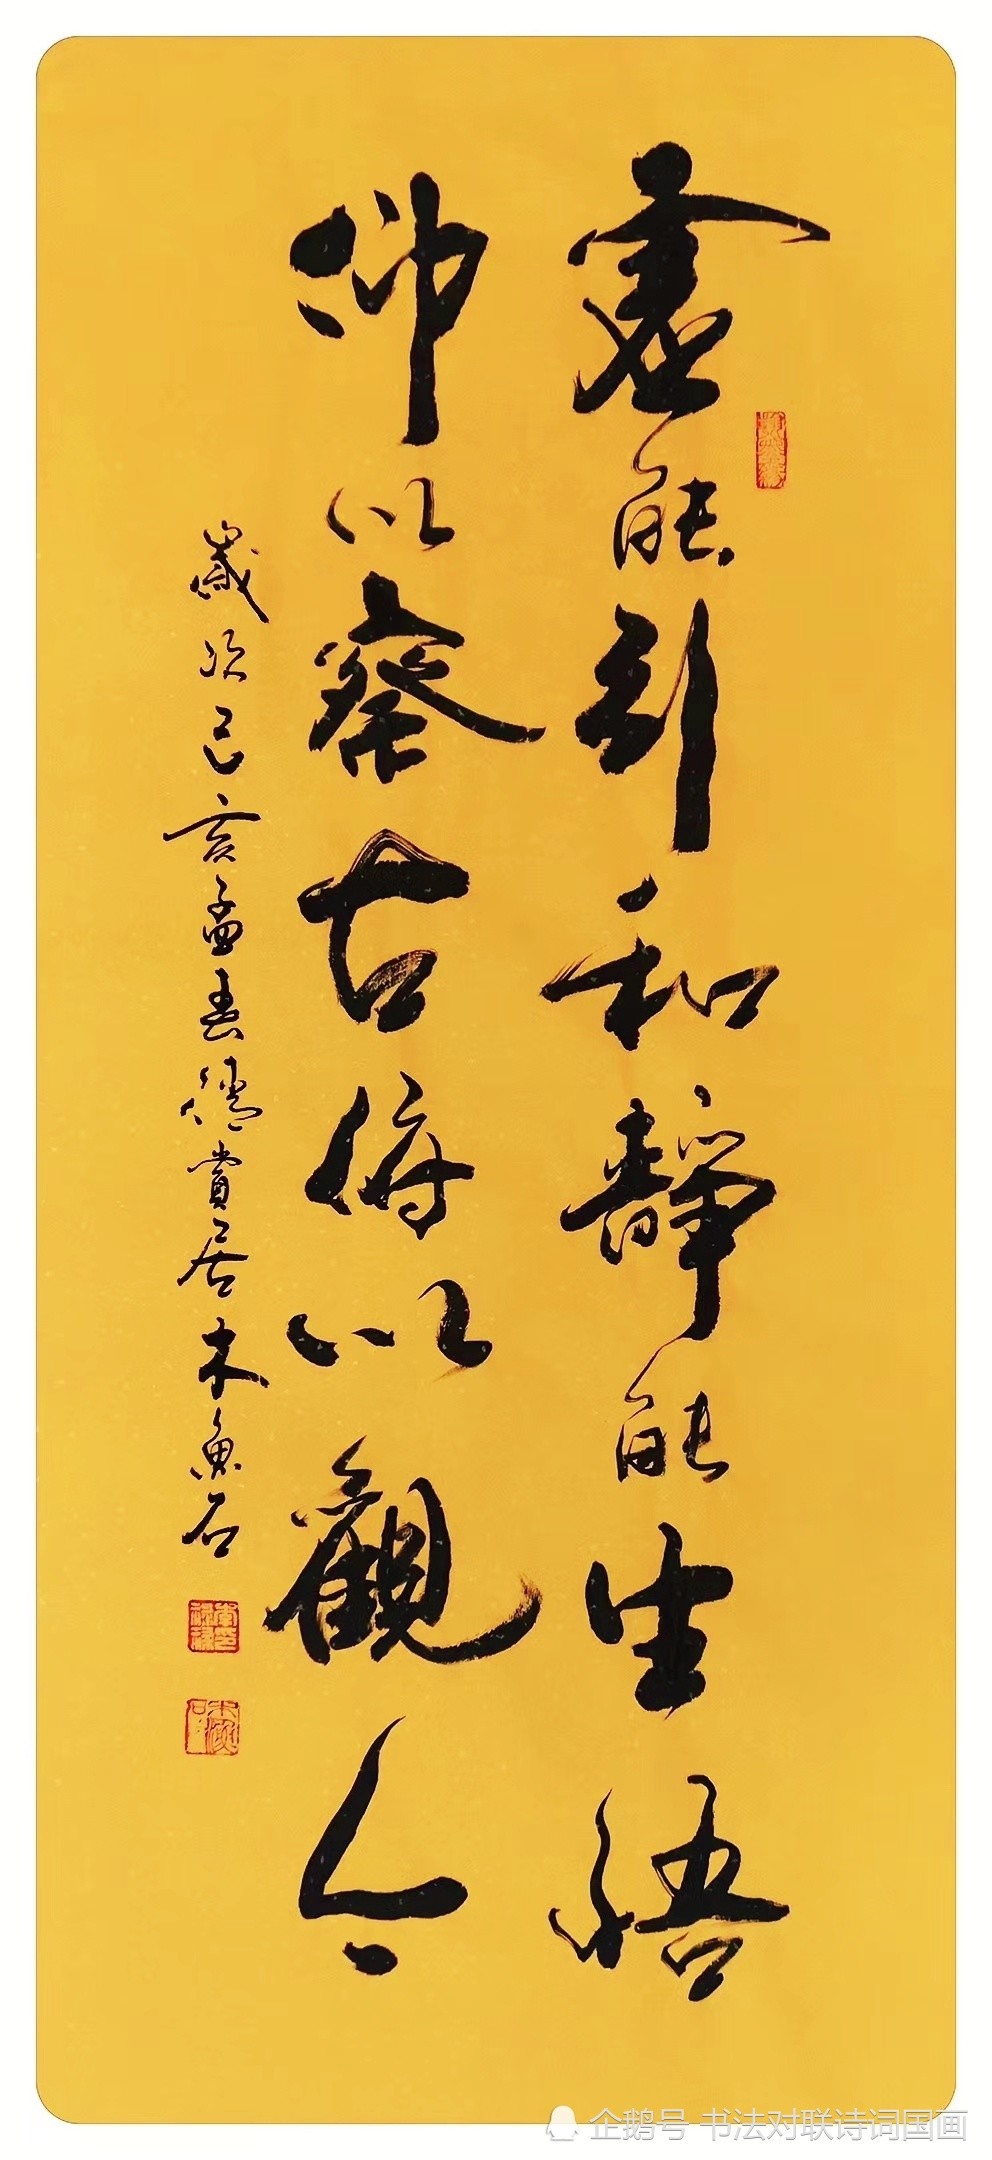 虚能引和靜能生悟
仰以察古俯以觀今
歲次己亥孟春德賞居木魚石
企鹅号 书法对联诗词国画